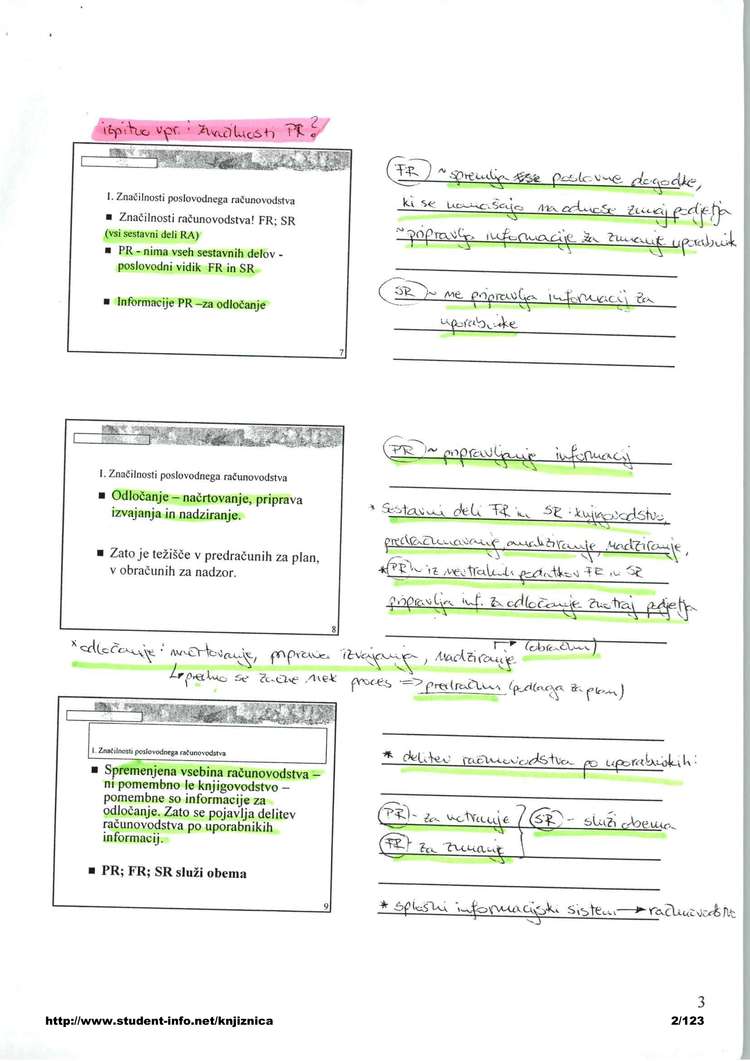 ispitno vpr.: značilnosti PR?
I. Značilnosti poslovodnega računovodstva
■ Značilnosti računovodstva! FR; SR
(vsi sestavni deli RA)
■ PR - nima vseh sestavnih delov -
poslovodni vidik FR in SR
■ Informacije PR –za odločanje
7
FR ~ spremlja poslovne dogodke,
ki se nanašajo na odnose zunaj podjetja
~ pripravlja informacije za zunanje uporabnik
SR ~ ne pripravlja informacij za
uporabnike
I. Značilnosti poslovodnega računovodstva
■ Odločanje – načrtovanje, priprava
izvajanja in nadziranje.
■ Zato je težišče v predračunih za plan,
v obračunih za nadzor.
8
PR ~ pripravljanje informacij
* Sestavni deli FR in SR: knjigovodstvo,
predračunavanje, analiziranje, nadziranje,
* PR ~ iz nevtralnih podatkov FR in SR
pripravlja inf. za odločanje znotraj podjetja
* odločanje: načrtovanje, priprava izvajanja, nadziranje → (obračun)
↳ predno se začne nek proces => predračun (podlaga za plan)
I. Značilnosti poslovodnega računovodstva
■ Spremenjena vsebina računovodstva –
ni pomembno le knjigovodstvo –
pomembne so informacije za
odločanje. Zato se pojavlja delitev
računovodstva po uporabnikih
informacij.
■ PR; FR; SR služi obema
9
* delitev računovodstva po uporabnikih:
PR - za notranje } SR - služi obema
FR - za zunanje
* splošni informacijski sistem → računovodstvo
3
http://www.student-info.net/knjiznica
2/123